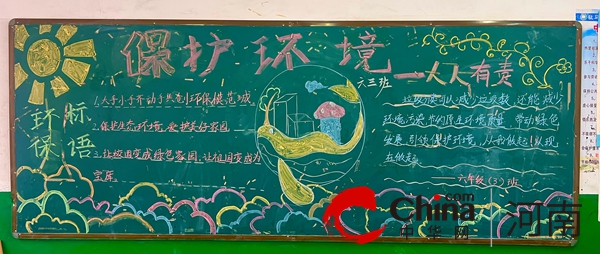 保护环境
人人有责
六三班
环保
标语
1.大手小手齐动手共创环保模范城
2.保护生态环境,爱护美好家园
3.让校园变成绿色家园,让祖国变成为
宝库
垃圾分类可以减少垃圾数,还能减少
环境污染
发展,引领保护环境,从我做起,从现
在做起。
——六年级(3)班
China.com
中华网
河南